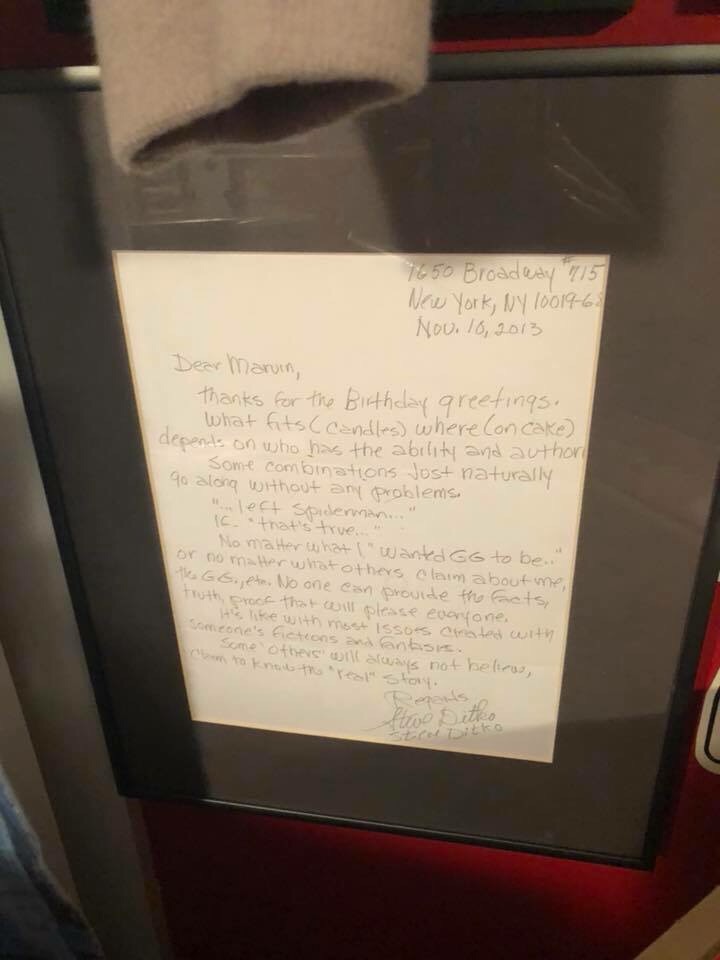 1650 Broadway #715
New York, NY 10019-6
Nov. 10, 2013
Dear Marvin,
thanks for the Birthday greetings.
What fits (candles) where (on cake)
depends on who has the ability and author
Some combinations Just naturally
go along without any problems.
"... left Spiderman..."
"that's true..."
No matter what I "wanted GG to be.."
or no matter what others claim about me,
the GG., etc. No one can provide the facts,
truth, proof that will please everyone.
It's like with most issues created with
someone's fictions and fantasies.
Some 'others' will always not believe,
claim to know the "real" story.
Regards
Steve Ditko
Steve Ditko